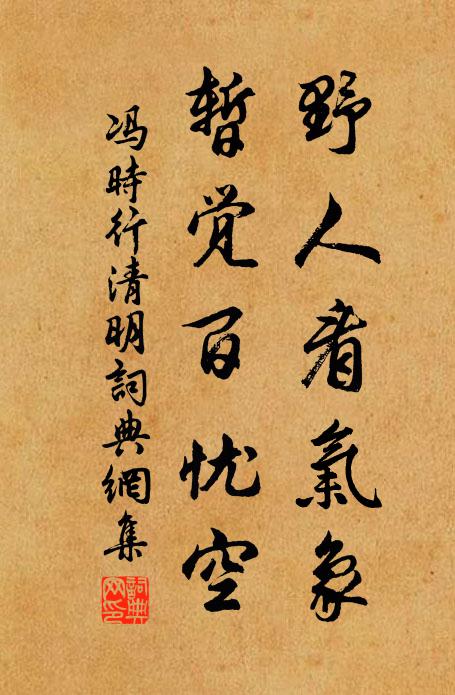 野人看氣象
暫觉百忧空
冯時行清明詞典網集
詞典网印